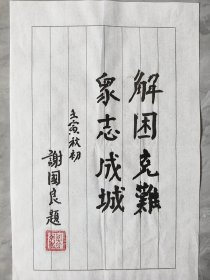 解困克難
眾志成城
壬寅秋初
謝國良題